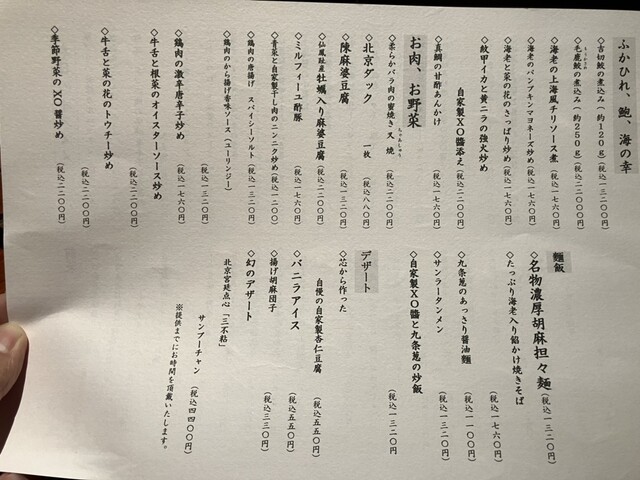 ふかひれ、鮑、海の幸
◇吉切鮫の煮込み(約120g)(税込一三二〇〇円)
◇毛鹿鮫の煮込み(約250g)(税込二二〇〇〇円)
◇海老の上海風チリソース煮(税込一七六〇円)
◇海老のパンプキンマヨネーズ炒め(税込一七六〇円)
◇海老と菜の花のさっぱり炒め(税込一七六〇円)
◇紋甲イカと黄ニラの強火炒め
自家製XO醬添え(税込二二〇〇円)
◇真鯛の甘酢あんかけ(税込一七六〇円)
お肉、お野菜
◇柔らかバラ肉の蜜焼き叉焼(税込一三二〇円)
◇北京ダック 一枚(税込八八〇円)
◇陳麻婆豆腐(税込一三二〇円)
◇仙鳳趾産牡蠣入り麻婆豆腐(税込二二〇〇円)
◇ミルフィーユ酢豚(税込一七六〇円)
◇青菜と自家製干し肉のニンニク炒め(税込一三二〇円)
◇鶏肉の唐揚げ スパイシーソルト(税込一三二〇円)
◇鶏肉のから揚げ香味ソース(ユーリンジー)
(税込一三二〇円)
◇鶏肉の激辛唐辛子炒め(税込一七六〇円)
◇牛舌と根菜のオイスターソース炒め
(税込二二〇〇円)
◇牛舌と菜の花のトウチー炒め
(税込二二〇〇円)
◇季節野菜のXO醬炒め(税込二二〇〇円)
麺飯
◇名物濃厚胡麻担々麺(税込一三二〇円)
◇たっぷり海老入り餡かけ焼きそば
(税込一七六〇円)
◇九条葱のあっさり醬油麺(税込一一〇〇円)
◇サンラータンメン(税込一三二〇円)
◇自家製XO醬と九条葱の炒飯
(税込一三二〇円)
デザート
◇芯から作った
自慢の自家製杏仁豆腐(税込五五〇円)
◇バニラアイス(税込五五〇円)
◇揚げ胡麻団子(税込三三〇円)
◇幻のデザート
北京宮廷点心「三不粘」
サンプーチャン(税込四四〇〇円)
※提供までにお時間を頂戴いたします。